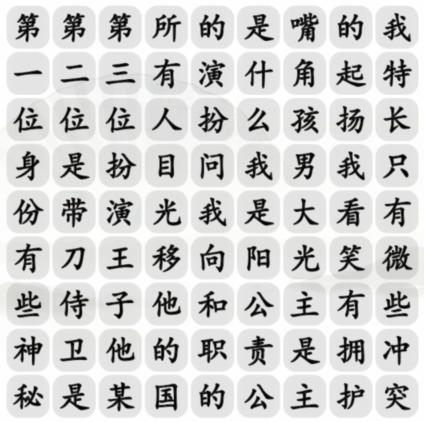 第第第所的是嘴的我
一二三有演什角起特
位位位人扮么孩扬长
身是扮目问我男我只
份带演光我是大看有
有刀王移向阳光笑微
些侍子他和公主有些
神卫他的职责是拥冲
秘是某国的公主护突